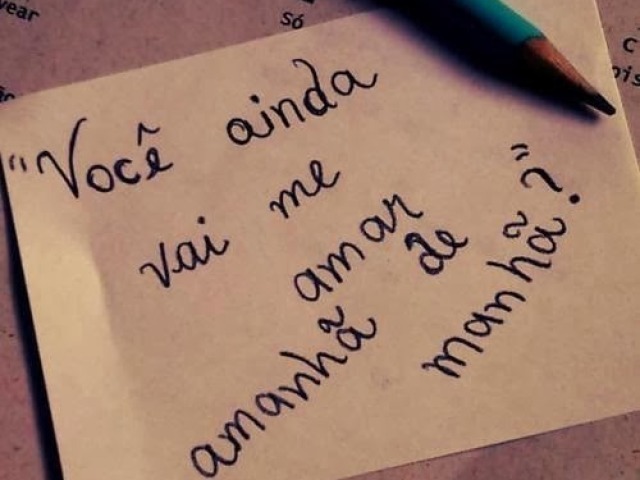 vear
só
"Você ainda
vai me
amar
amanhã de
manhã?"